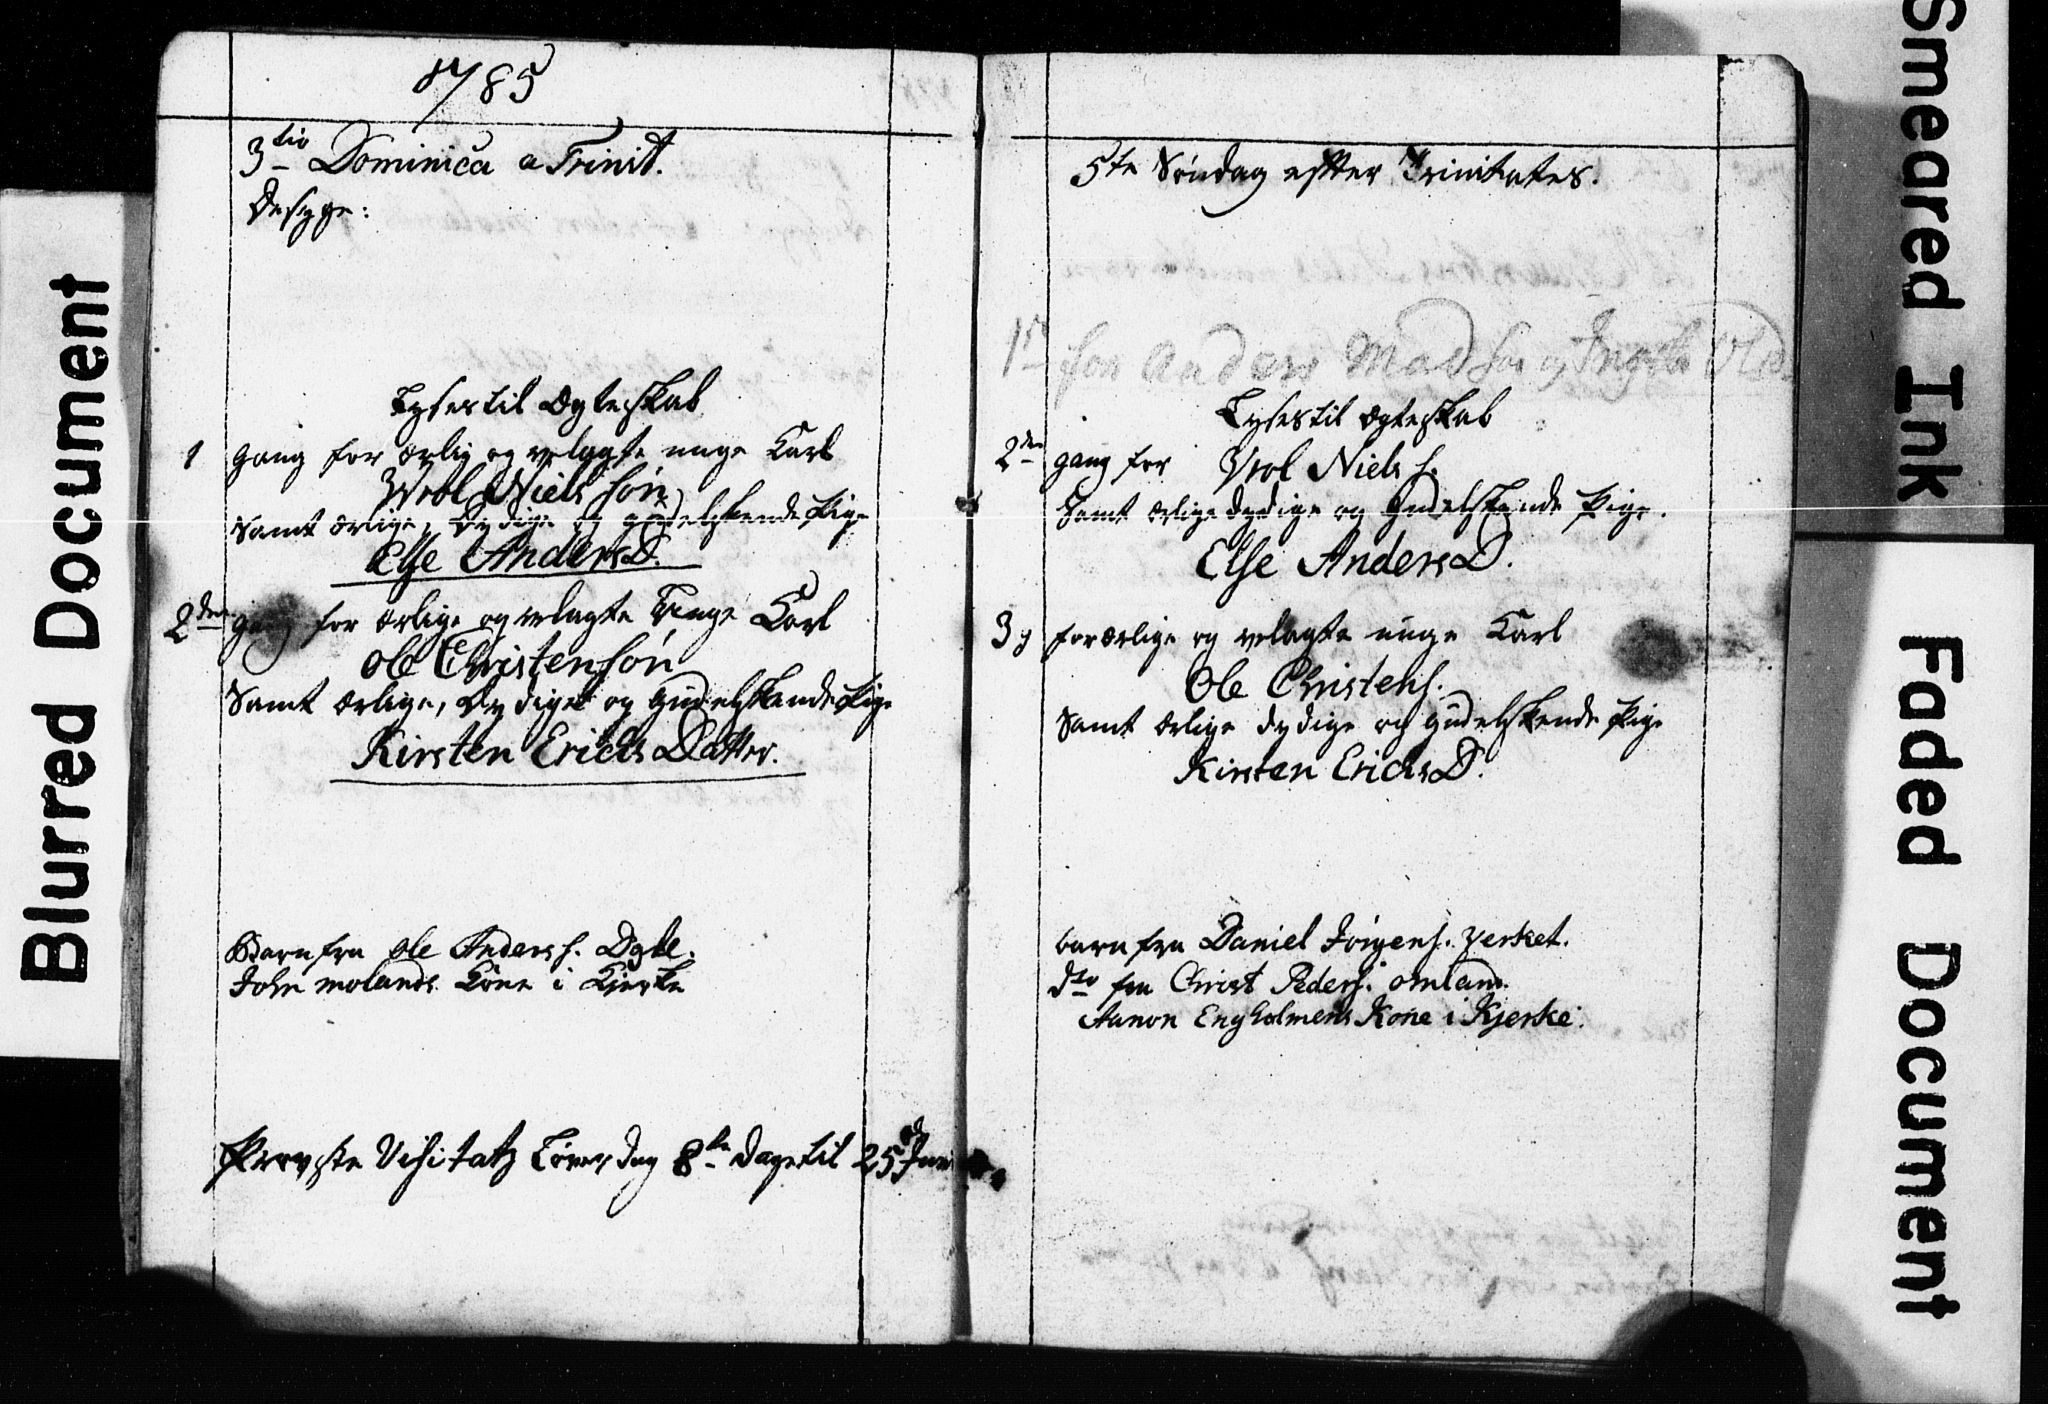 1785
3tio Dominica a Trinit.
De syge:
Lyses til Ægteskab
1 gang for ærlig og velagte unge Karl
Wrol Nielssøn
Samt ærlige, Dydige og gudelskende Pige
Else AndersD.
2den gang for ærlige og velagte Unge Karl
Ole Christensøn
Samt ærlige, Dydige og gudelskende Pige
Kirsten Erichs Datter.
Barn fra Ole Anders s.
John molands Kone i Kjerke
Provste Visitatz Løverdag 8te dage til 25de Juni
5te Søndag efter Trinitates.
1ste for Anders Madsen og
Lyses til Ægteskab
2den gang for Wrol Niels s.
Samt ærlige dydige og Gudelskende Pige.
Else AndersD.
3g for ærlige og velagte unge Karl
Ole Christens.
Samt ærlige dydige og gudelskende Pige
Kirsten ErichsD.
barn fra Daniel Jørgens.
dto fra Christ Peders. omland.
Aanon Engholmens Kone i Kjerke.
Blurred Document
Smeared Ink
Faded Document